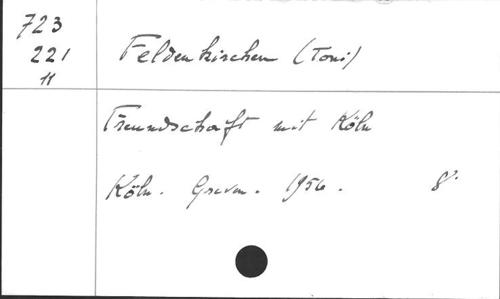 723
221
11
Feldenkirchen (Toni)
Freundschaft mit Köln
Köln. Greven. 1956. 8°